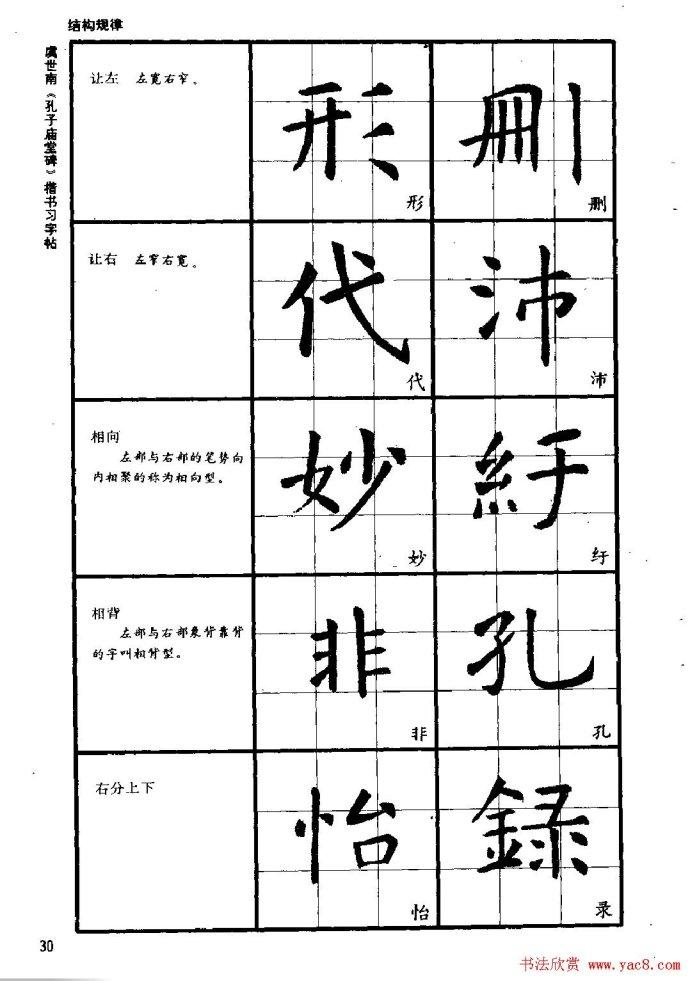 结构规律
虞世南《孔子庙堂碑》楷书习字帖
让左 左宽右窄。
形 删
形 删
让右 左窄右宽。
代 沛
代 沛
相向
左部与右部的笔势向
内相聚的称为相向型。
妙 紆
妙 纡
相背
左部与右部象背靠背
的字叫相背型。
非 孔
非 孔
右分上下
怡 録
怡 录
30
书法欣赏 www.yac8.com